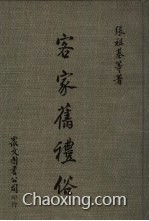 張祖基等著
客家舊禮俗
眾文圖書公司印行
Chaoxing.com